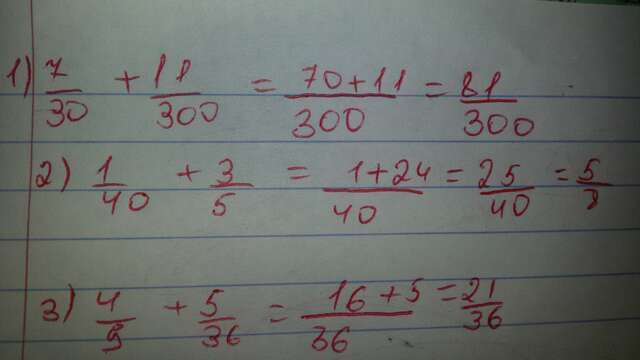 1) 7/30 + 11/300 = 70+11/300 = 81/300
2) 1/40 + 3/5 = 1+24/40 = 25/40 = 5/8
3) 4/9 + 5/36 = 16+5/36 = 21/36